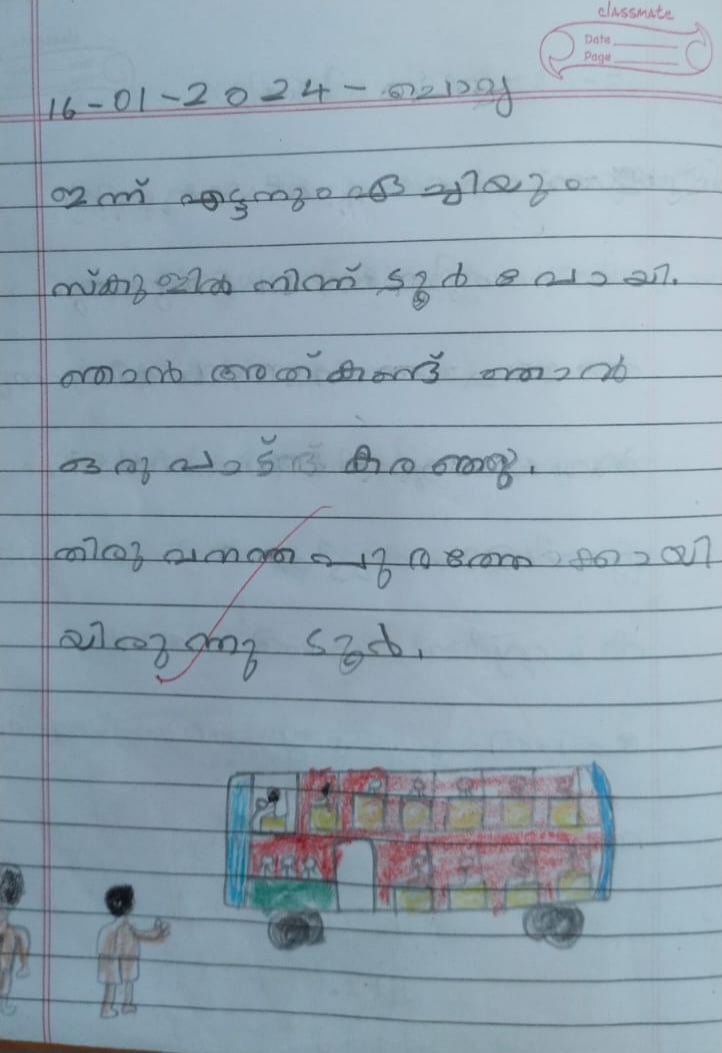 classmate
Date
Page
16-01-2024 - ചൊവ്വ
ഇന്ന് ഏട്ടനും ചേച്ചിയും
സ്കുളിൽ നിന്ന് ടൂർ പോയി.
ഞാൻ അത് കണ്ട് ഞാൻ
ഒരുപാട് കരഞ്ഞു.
തിരുവനന്തപുരത്തേക്കായി
യിരുന്നു ടൂർ.